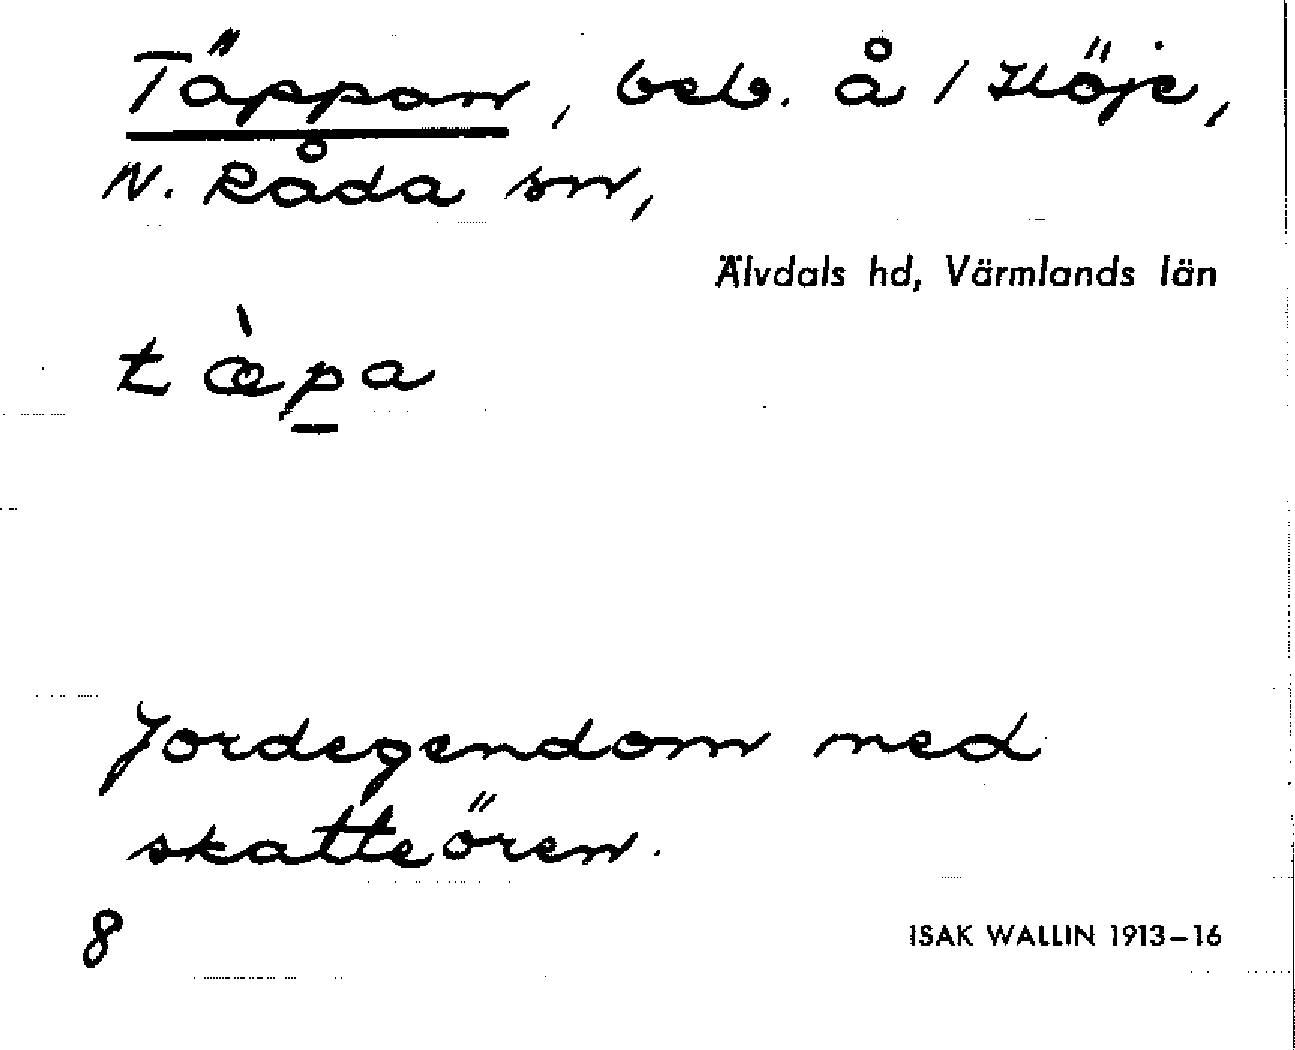 Täppan, beb. å 1 Höje,
N. Råda sn,
Älvdals hd, Värmlands län
tæ̀p̲a
Jordegendom med
skatteören.
8
ISAK WALLIN 1913–16